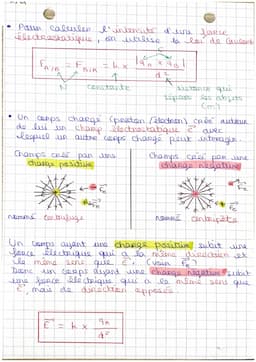 • Pour calculer l'intensité d'une force
électrostatique, on utilise la loi de Coulomb
F A/B = F B/A = k × |qA × qB| / d²
N constante distance qui
sépare les objets
(m)
• Un corps chargé (proton / électron) crée autour
de lui un champ électrostatique E avec
lequel un autre corps chargé peut interagir
Champs créé par une
charge positive
Champs créé par une
charge négative
nommé centrifuge
nommé centripète
Un corps ayant une charge positive subit une
force électrique qui a la même direction et
le même sens que E. (voir F)
Donc un corps ayant une charge négative subit
une force électrique qui a le même sens que
E, mais de direction opposée
E = k × qA / d²